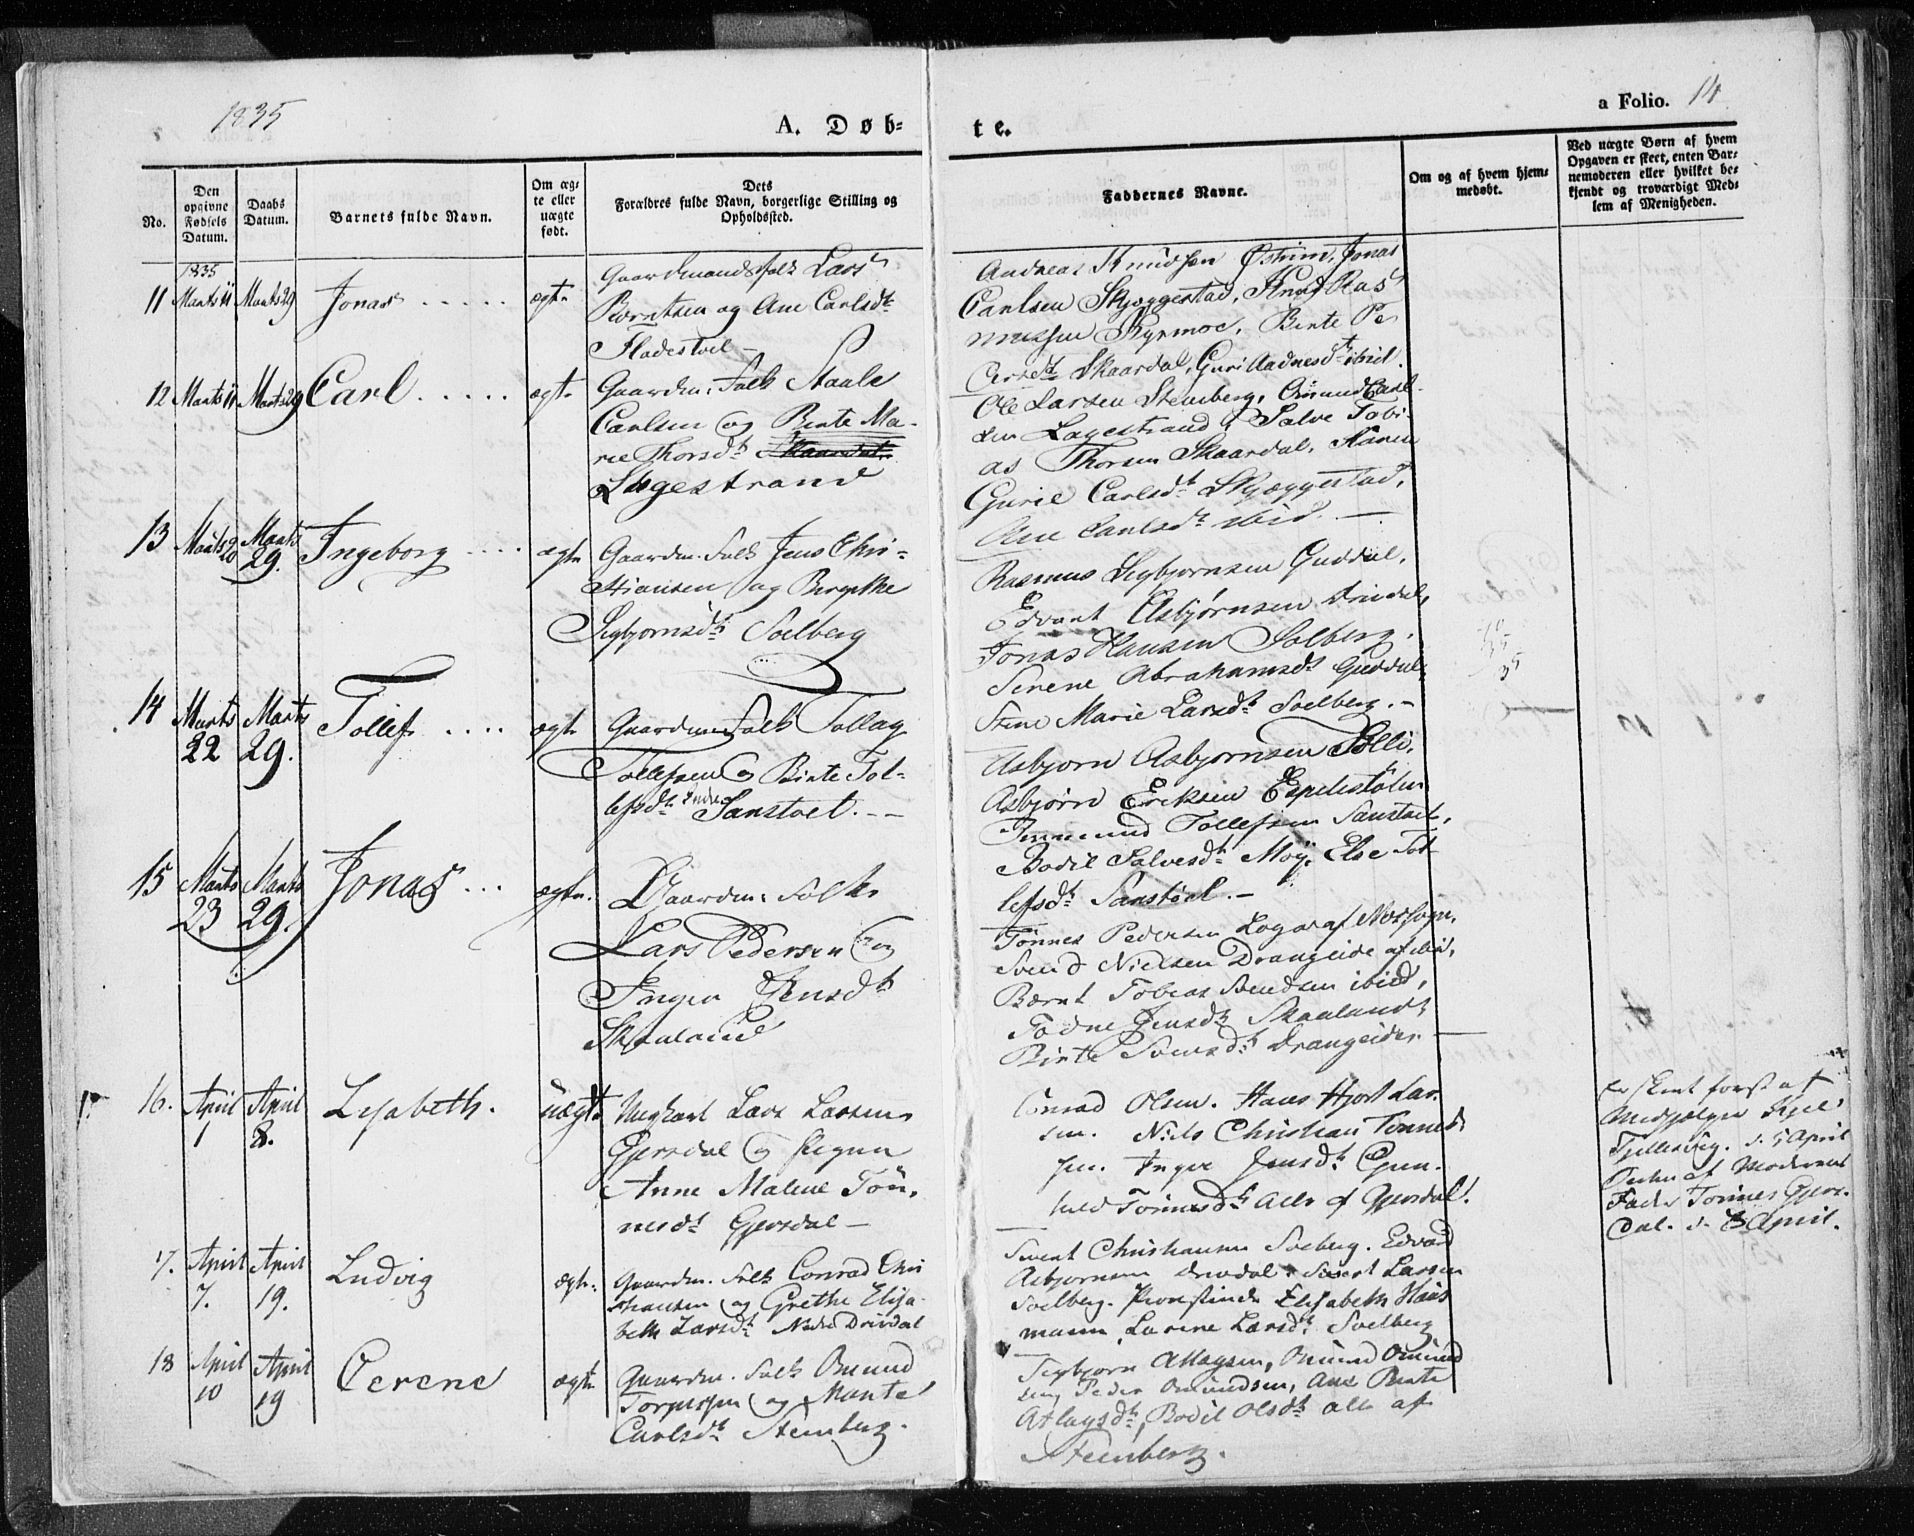 1835
A. Døb-
te.
a Folio. 14
No.
Den opgivne Fødsels Datum.
Daabs Datum.
Barnets fulde Navn.
Om ægte eller uægte født.
Dets Forældres fulde Navn, borgerlige Stilling og Opholdssted.
Faddernes Navne.
Om og af hvem hjemmedøbt.
Ved uægte Børn af hvem Opgaven er skeet, enten Barnemoderen eller hvilket bekjendt og troværdigt Medlem af Menigheden.
1835
11 Marts 11 Marts 29 Jonas ægte
Gaardmandsfolk Lars
Berntsen og Ane Carlsdt
Fladestoel
Andreas Knudsen Østrim, Jonas
Carlsen Skjeggestad, Knut Ras
mussen Rysmoe, Birte Pe
dersdt Skaardal, Guri Aadnesdt ibid.
12 Marts 11 Marts 29 Carl ægte
Gaardm: Folk Staale
Carlsen og Birte Ma-
rie Thorsdt
Lagestrand
Ole Larsen Stemberg, Omund Carl
sen Lagestrand, Salve Tobi
as Thorsen Skaardal, Karen
Gurie Carlsdt Skjeggestad,
Ane Carlsdt ibid.
13 Marts 20 Marts 29. Ingeborg ægte
Gaardm. Folk Jens Chri-
stiansen og Birgithe
Sigbjørnsdt Solberg
Rasmus Sigbjørnsen Guddal,
Edvart Asbjørnsen Drivdal,
Jonas Hansen Solberg.
Serene Abrahamsdt Guddal,
Stine Marie Larsdt Soelberg.
14 Marts 22 Marts 29. Tollef ægte
Gaardm. Folk Tollag
Tollefsen og Birte Tol-
lefsdt Indre Sanstoel.
Asbjørn Asbjørnsen Solli,
Asbjørn Eriksen Espelistølen
Tollefsen Sanstoel,
Bodil Salvesdt Moy, Else Tol
lefsdt Sanstoel.
15 Marts 23 Marts 29. Jonas ægte.
Gaardm: Folk
Lars Pedersen og
Inger Jensdt
Skaaland
Tønnes Pedersen Loga af Næssogn,
Svend Nielsen Drangeide af ibid,
Bernt Tobias Svendsen ibid,
Todne Jensdt Skaaland,
Birte Svensdt Drangeide.
16. April 1 April 8. Lisabeth. uægte
Ungkarl Lars Larsen
Gjersdal og Pigen
Anne Malene Tøn-
nesdt Gjersdal
Conrad Olsen. Hans Hjort Lar-
sen. Niels Christian Tønnes
sen. Inger Jensdt Gun-
hild Tønnesdt Alle af Gjersdal.
er skeet først af
Medhjælper Kjel
Fjellestvig. d. 5 April
siden af Moderens
Fader Tønnes Gjers-
dal. d. 8 April.
17. April 7. April 19. Ludvig ægte.
Gaardm. Folk Conrad Chri
stiansen og Grethe Elisa-
beth Larsdt Nedre Drivdal
Sivert Christiansen Soeberg. Edvard
Asbjørnsen Drivdal. Sivert Larsen
Soelberg. Provstinde Elisabeth Haus
mann, Larene Larsdt Soelberg
18 April 10 April 19 Cerene ægte
Gaardm. Folk Omund
Torgersen og Marte
Carlsdt Stemberg.
Sigbjørn Atlagsen, Omund Omund
sen, Peder Omundsen, Ane Birte
Atlagsdt, Bodil Olsdt alle af
Steenberg.